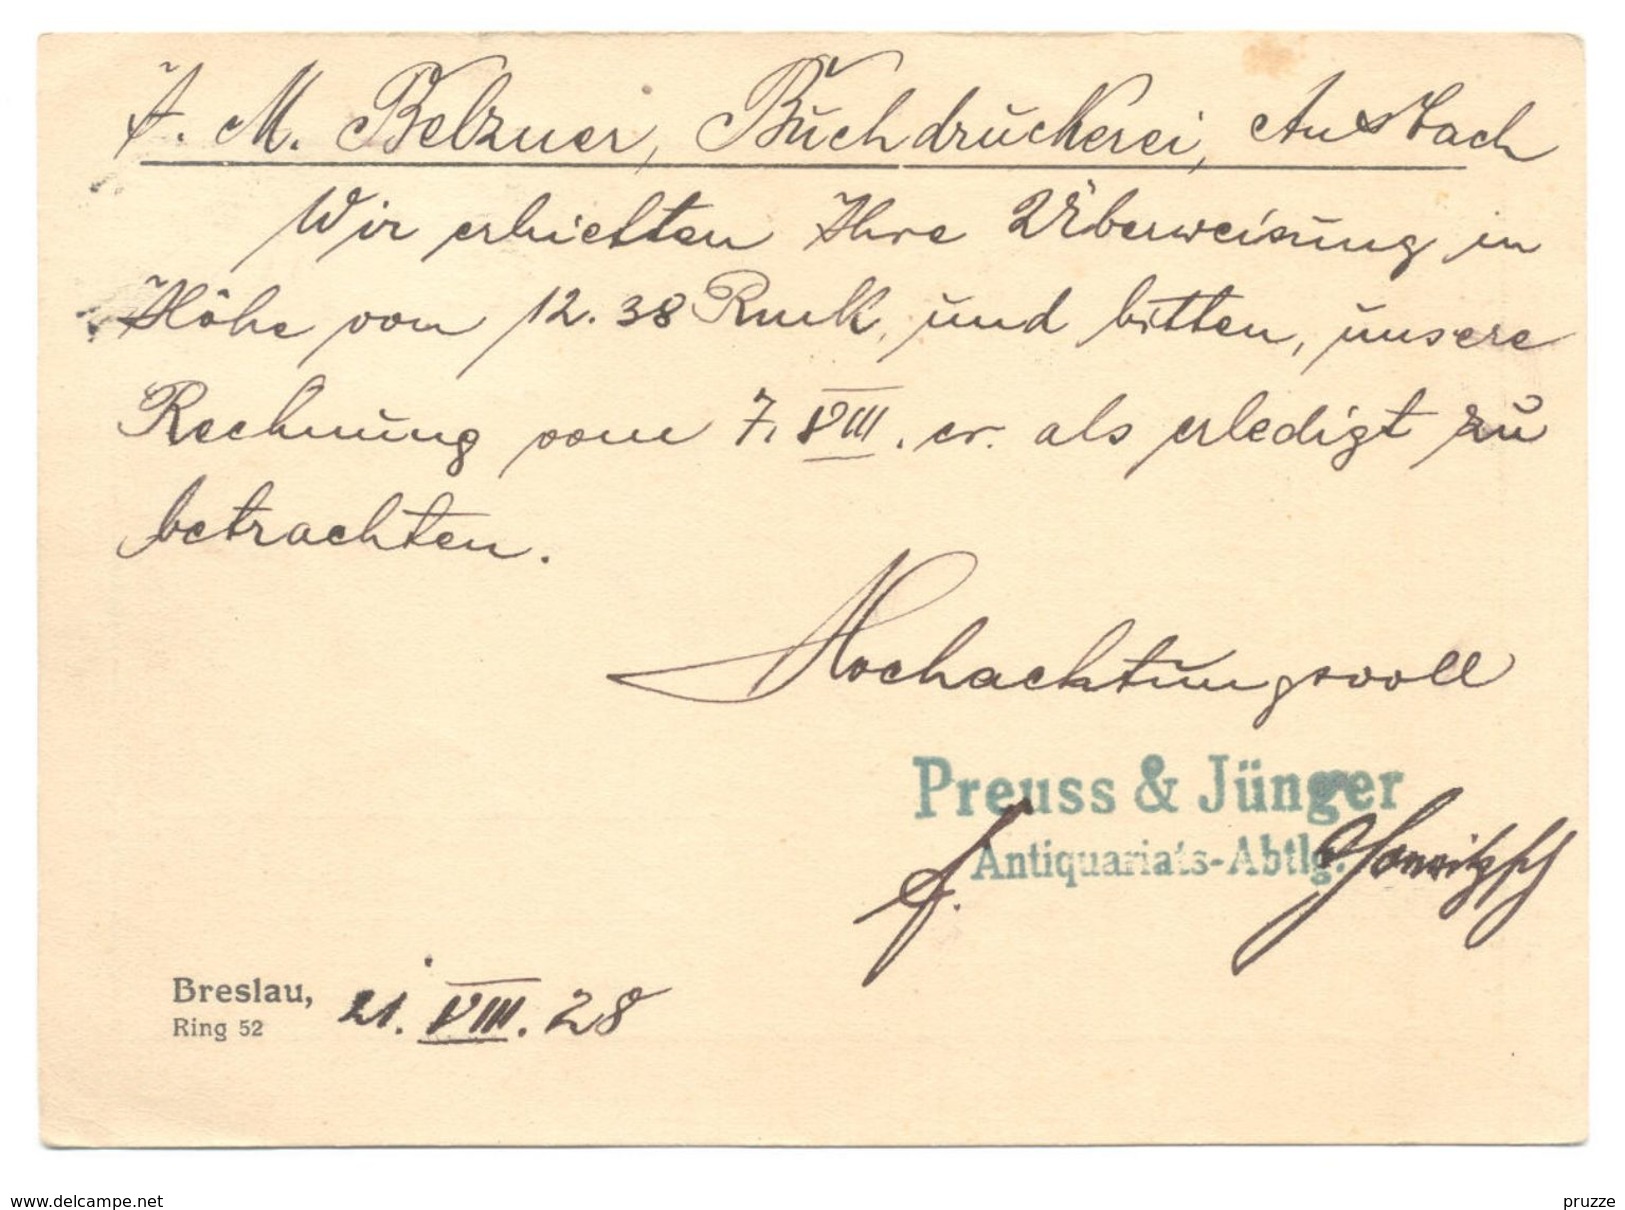 J. M. Belzner, Buchdruckerei, Ansbach
Wir erhielten Ihre Überweisung in
Höhe von 12.38 Rmk, und bitten, unsere
Rechnung vom 7. VIII. cr. als erledigt zu
betrachten.
Hochachtungsvoll
Preuss & Jünger
Antiquariats-Abtlg.
Breslau, 21. VIII. 28
Ring 52
www.delcampe.net
pruzze